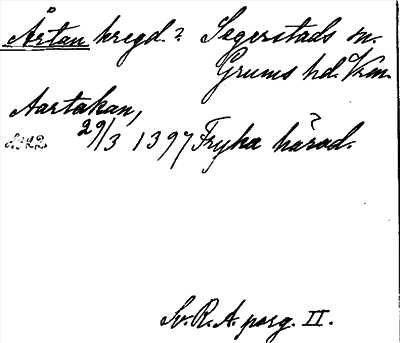 Årtan kregd.? Segerstads sn.
Grums hd. Vrm.
Aartakan,
29/3 1397 Fryka härad.
Sv. R. A. perg. II.